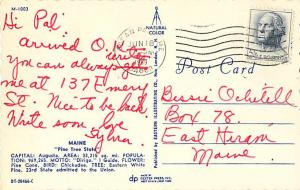 M-1003
Hi Pal
arrived O.
you can always get
me at 137 Emery
St. Nice to be back.
Write soon love
Sylvia
MAINE
"Pine Tree State"
CAPITAL: Augusta, AREA: 33,215 sq. mi. POPULA-
TION: 969,265 MOTTO: "Dirigo," I Guide, FLOWER:
Pine Cone. BIRD: Chickadee. TREE: Eastern White
Pine. 23rd State admitted to the Union.
DT-28466-C
NATURAL
COLOR
JUN 18
Post Card
Bessie
Box 78
East Hiram
Maine
dp
DEXTER PRESS, INC.